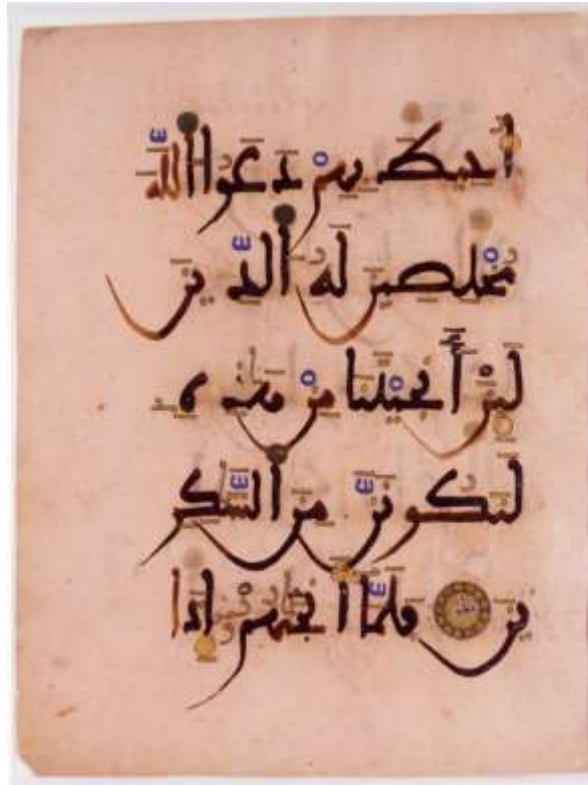 أُحِيطَ بِهِمْ دَعَوُا اللَّهَ
مُخْلِصِينَ لَهُ الدِّينَ
لَئِنْ أَنْجَيْتَنَا مِنْ هَذِهِ
لَنَكُونَنَّ مِنَ الشَّكِرِ
ينَ فَلَمَّا أَنْجَيهُمْ إِذَا